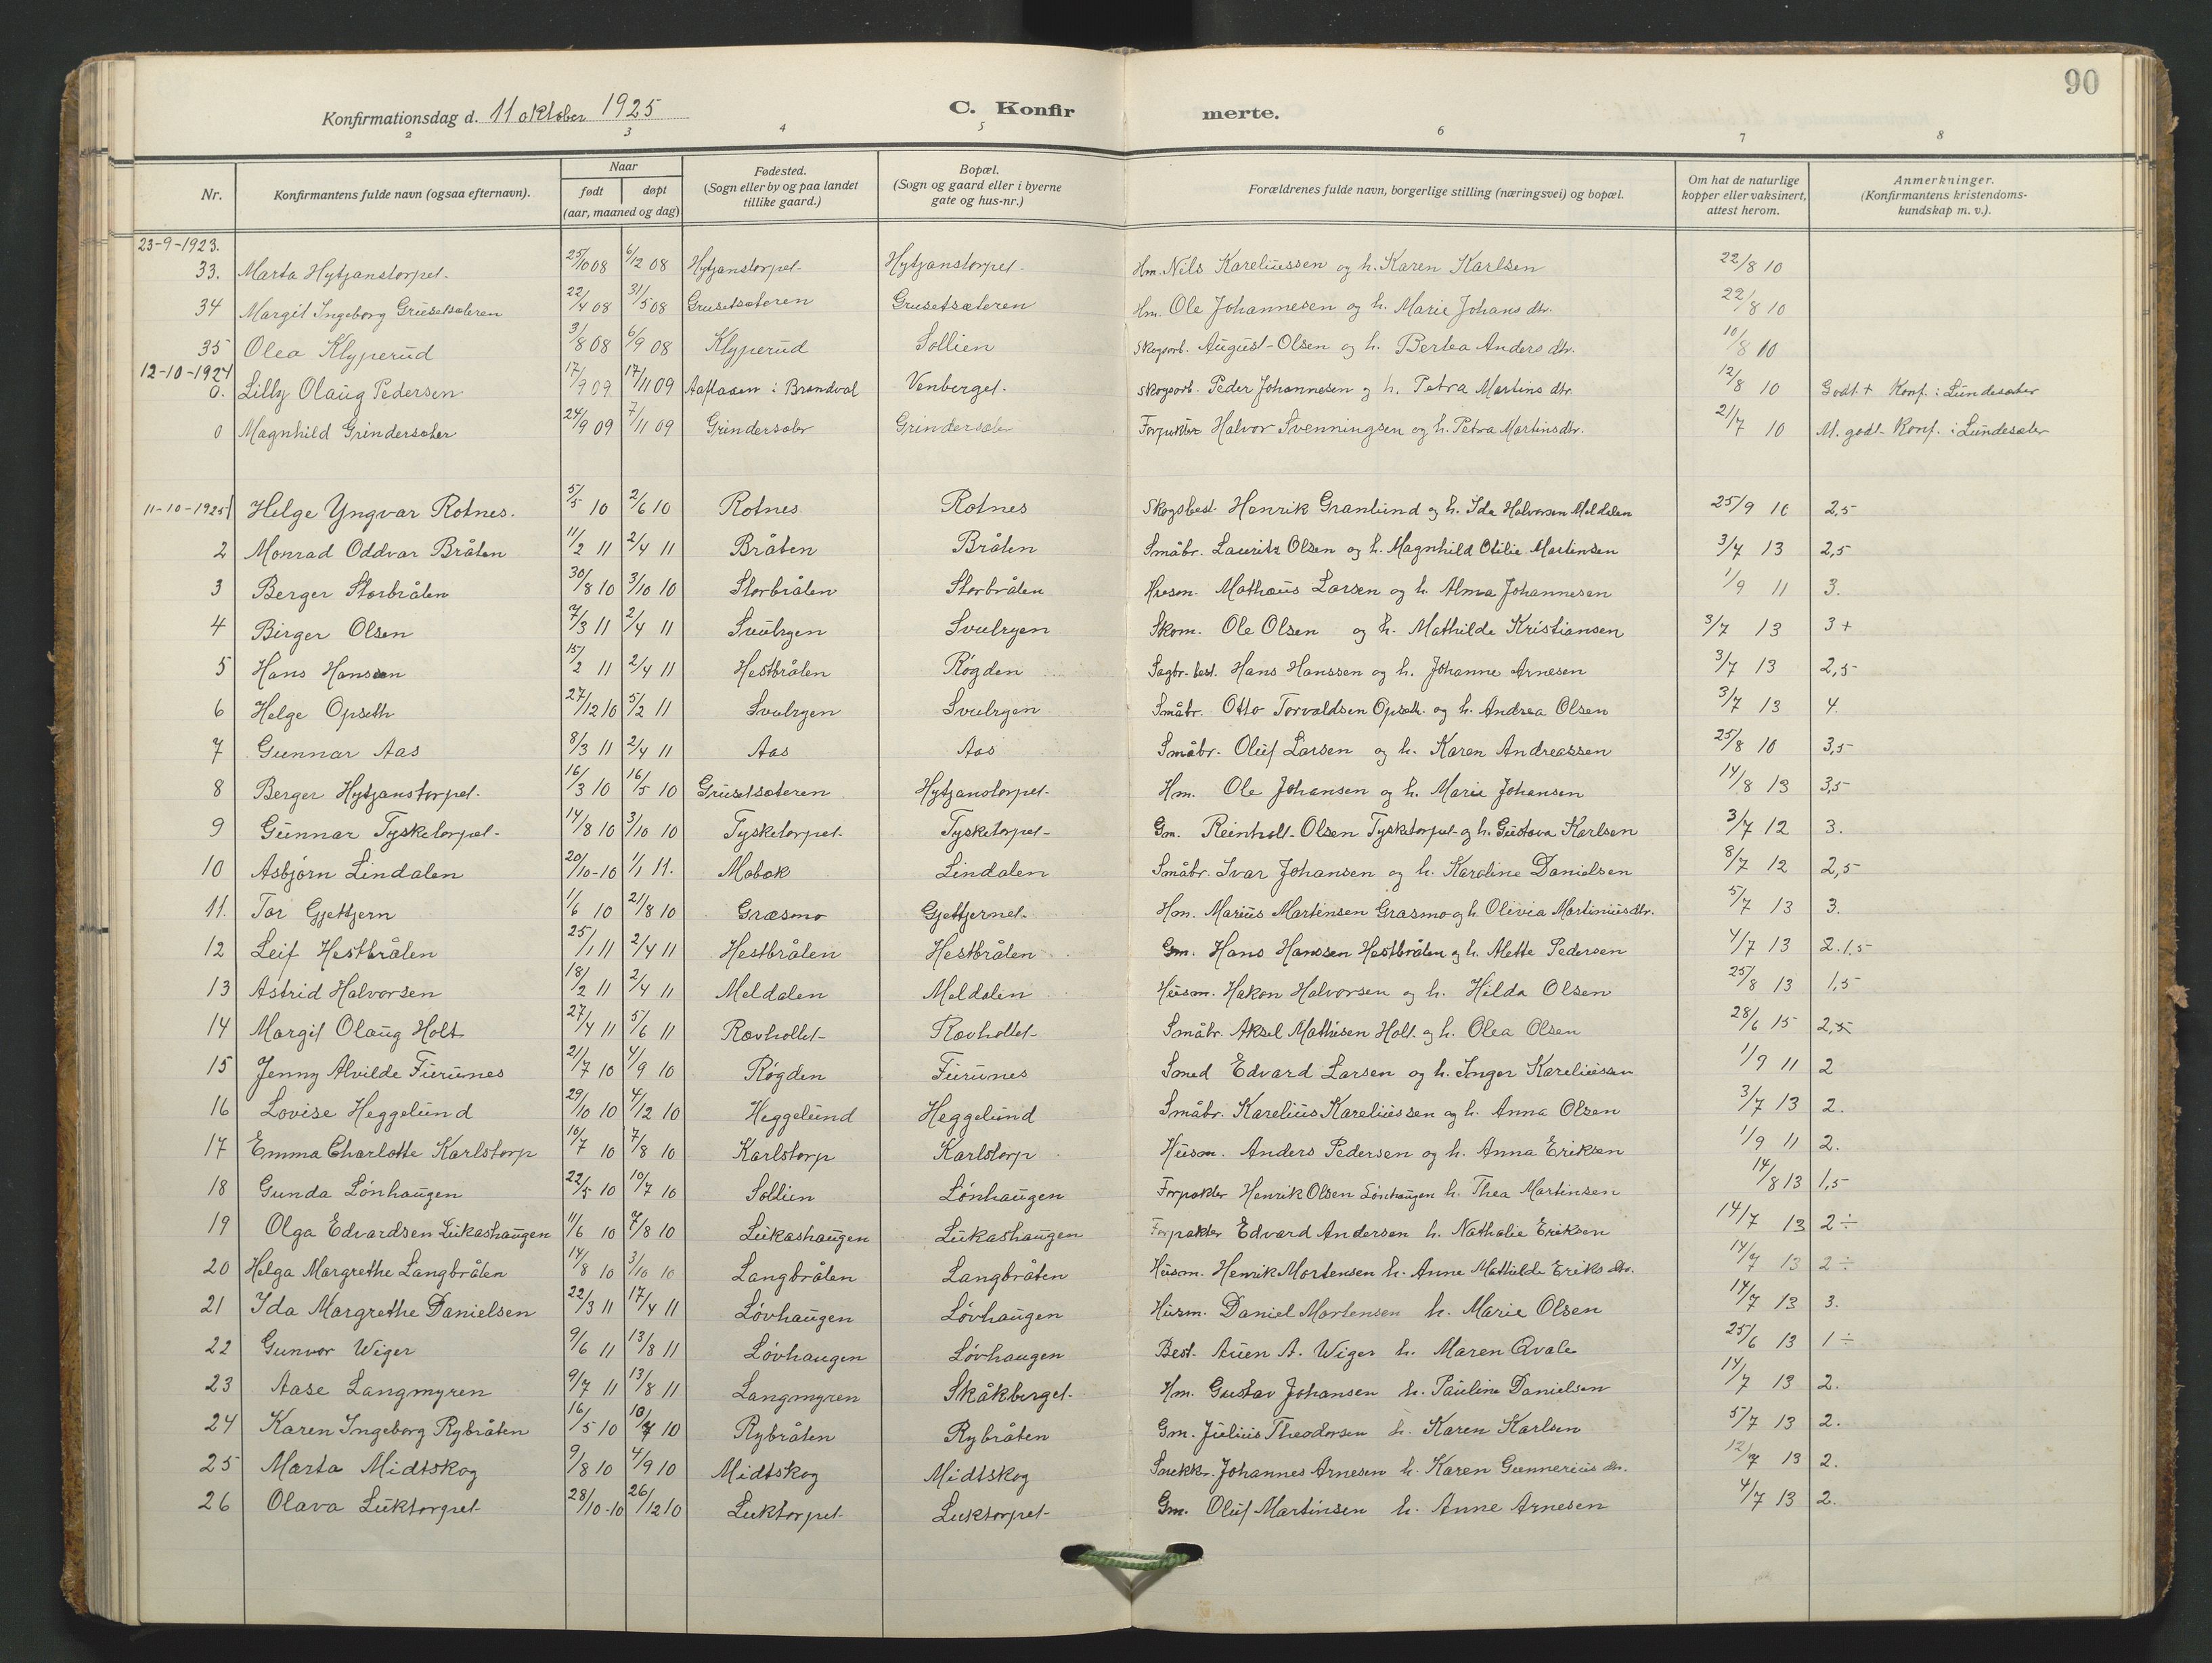 90
Konfirmationsdag d. 11 oktober 1925 C. Konfirmerte.
2 3 4 5 6 7 8
Nr. Konfirmantens fulde navn (ogsaa efternavn). Naar født døpt (aar, maaned og dag) Fødested. (Sogn eller by og paa landet tillike gaard.) Bopæl. (Sogn og gaard eller i byerne gate og hus-nr.) Forældrenes fulde navn, borgerlige stilling (næringsvei) og bopæl. Om hat de naturlige kopper eller vaksinert, attest herom. Anmerkninger. (Konfirmantens kristendoms-kundskap m. v.).
23-9-1923.
33. Marta Hytjanstorpet. 25/10 08 6/12 08 Hytjanstorpet. Hytjanstorpet. Hm. Nils Kareliussen og h. Karen Karlsen 22/8 10
34 Margit Ingeborg Grusetsæteren 22/4 08 31/5 08 Grusetsæteren Grusetsæteren Hm. Ole Johannesen og h. Marie Johans dtr. 22/8 10
35 Olea Klyperud 3/8 08 6/9 08 Klyperud Sollien Skogsarb. August Olsen og h. Bertea Anders dtr. 10/8 10
12-10-1924
0. Lilly Olaug Pedersen 17/9 09 17/11 09 i Brandval Venberget. Skogsarb. Peder Johannesen og h. Petra Martins dtr. 12/8 10 Godt + Konf. i Lundesæter
0 Magnhild Grindersæter 24/9 09 7/11 09 Grindersæter Grindersæter Forpakter Halvor Svenningsen og h. Petra Martinsdtr. 21/7 10 M. godt Konf. i Lundesæter
11-10-1925 1 Helge Yngvar Rotnes. 5/5 10 2/6 10 Rotnes Rotnes Skogsbest. Henrik Granlund og h. Ida Halvorsen Meldalen 25/9 10 2,5
2 Monrad Oddvar Bråten 11/2 11 2/4 11 Bråten Bråten Småbr. Lauritz Olsen og h. Magnhild Otilie Martinsen 3/7 13 2,5
3 Berger Storbråten 30/8 10 3/10 10 Storbråten Storbråten Husm. Mathæus Larsen og h. Alma Johannesen 1/9 11 3.
4 Birger Olsen 7/3 11 2/4 11 Svulryen Svulryen Skom. Ole Olsen og h. Mathilde Kristiansen 3/7 13 3 +
5 Hans Hanssen 15/2 11 2/4 11 Hestbråten Røgden Sagbr. best. Hans Hanssen og h. Johanne Arnesen 3/7 13 2,5
6 Helge Opseth 27/12 10 5/2 11 Svulryen Svulryen Småbr. Otto Torvaldsen Opseth og h. Andrea Olsen 3/7 13 4.
7 Gunnar Aas 8/3 11 2/4 11 Aas Aas Småbr. Oluf Larsen og h. Karen Andreassen 25/8 10 3,5
8 Berger Hytjanstorpet. 16/3 10 16/5 10 Grusetsæteren Hytjanstorpet. Hm. Ole Johansen og h. Marie Johansen 14/8 13 3,5
9 Gunnar Tysketorpet 14/8 10 3/10 10 Tysketorpet Tysketorpet Gm. Reinholt Olsen Tysketorpet og h. Gustava Karlsen 3/7 12 3.
10 Asbjørn Lindalen 20/10-10 1/1 11. Møbæk Lindalen Småbr. Ivar Johansen og h. Karoline Danielsen 8/7 12 2,5
11. Tor Gjettjern 1/6 10 21/8 10 Græsmo Gjettjernet. Hm. Marius Martinsen Grasmo og h. Olivia Martiniusdtr. 5/7 13 3.
12 Leif Hestbråten 25/1 11 2/4 11 Hestbråten Hestbråten Gm. Hans Hanssen Hestbråten og h. Alette Pedersen 4/7 13 2. 1,5
13 Astrid Halvorsen 18/2 11 2/4 11 Meldalen Meldalen Husm. Hakon Halvorsen og h. Hilda Olsen 25/8 13 1,5
14 Margit Olaug Holt 27/4 11 5/6 11 Rævhollet Rævhollet Småbr. Aksel Mathisen Holt og h. Olea Olsen 28/6 15 2,5
15 Jenny Alvilde Furunes 21/7 10 4/9 10 Røgden Furunes Smed Edvard Larsen og h. Inger Kareliussen 1/9 11 2
16 Lovise Heggelund 29/10 10 4/12 10 Heggelund Heggelund Småbr. Karelius Kareliussen og h. Anna Olsen 3/7 13 2.
17 Emma Charlotte Karlstorp 10/7 10 7/8 10 Karlstorp Karlstorp Husm. Anders Pedersen og h. Anna Eriksen 1/9 11 2.
18 Gunda Lønhaugen 22/5 10 10/7 10 Sollien Lønhaugen Forpakter Henrik Olsen Lønhaugen h. Thea Martinsen 14/8 13 1,5
19 Olga Edvardsen Lukashaugen 11/6 10 7/8 10 Lukashaugen Lukashaugen Forpakter Edvard Andersen h. Nathalie Eriksen 14/7 13 2 ÷
20 Helga Margrethe Langbråten 14/8 10 3/10 10 Langbråten Langbråten Husm. Henrik Mortensen h. Anne Mathilde Eriks dtr. 14/7 13 2 ÷
21 Ida Margrethe Danielsen 22/3 11 17/4 11 Løvhaugen Løvhaugen Husm. Daniel Mortensen h. Marie Olsen 14/7 13 3.
22 Gunvor Wiger 9/6 11 13/8 11 Løvhaugen Løvhaugen Best. Auen A. Wiger h. Maren Qvale 25/6 13 1 ÷
23 Aase Langmyren 9/7 11 13/8 11 Langmyren Skåkberget. Hm. Gustav Johansen h. Pauline Danielsen 14/7 13 2.
24 Karen Ingeborg Rybråten 16/5 10 10/7 10 Rybråten Rybråten Gm. Julius Theodorsen h. Karen Karlsen 5/7 13 2.
25 Marta Midtskog 9/8 10 4/9 10 Midtskog Midtskog Snekkr. Johannes Arnesen h. Karen Gunnerius dtr. 12/7 13 2.
26 Olava Luktorpet 28/10-10 26/12 10 Luktorpet Luktorpet Gm. Oluf Martinsen h. Anne Arnesen 4/7 13 2.